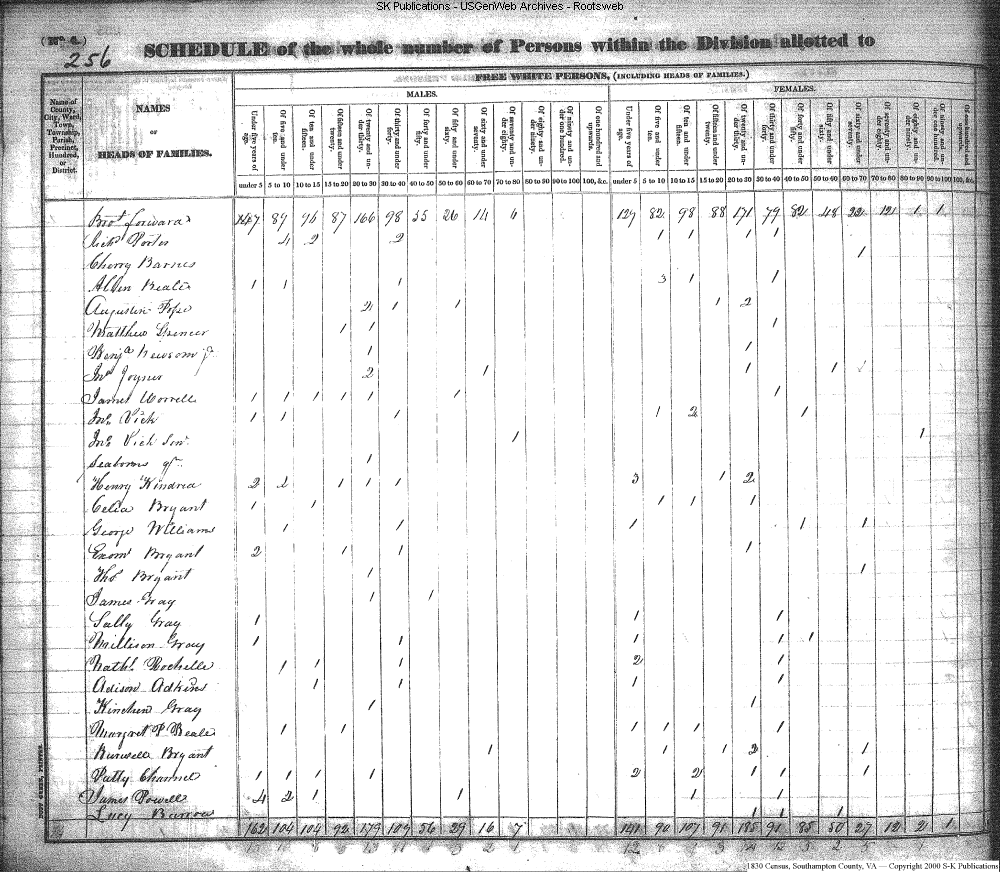 SK Publications - USGenWeb Archives - Rootsweb
(No. 6.)
256
SCHEDULE of the whole number of Persons within the Division allotted to
FREE WHITE PERSONS, (INCLUDING HEADS OF FAMILIES.)
MALES. FEMALES.
Name of County, City, Ward, Town, Township, Parish, Precinct, Hundred, or District.
NAMES
OF
HEADS OF FAMILIES.
Under five years of age. Of five and under ten. Of ten and under fifteen. Of fifteen and under twenty. Of twenty and under thirty. Of thirty and under forty. Of forty and under fifty. Of fifty and under sixty. Of sixty and under seventy. Of seventy and under eighty. Of eighty and under ninety. Of ninety and under one hundred. Of one hundred and upwards.
Under five years of age. Of five and under ten. Of ten and under fifteen. Of fifteen and under twenty. Of twenty and under thirty. Of thirty and under forty. Of forty and under fifty. Of fifty and under sixty. Of sixty and under seventy. Of seventy and under eighty. Of eighty and under ninety. Of ninety and under one hundred. Of one hundred and upwards.
under 5 5 to 10 10 to 15 15 to 20 20 to 30 30 to 40 40 to 50 50 to 60 60 to 70 70 to 80 80 to 90 90 to 100 100, &c. under 5 5 to 10 10 to 15 15 to 20 20 to 30 30 to 40 40 to 50 50 to 60 60 to 70 70 to 80 80 to 90 90 to 100 100, &c.
Brot. Forward 147 89 96 87 166 98 55 26 14 6 127 82 98 88 171 79 82 48 22 12 1 1
Porter 4 2 2 1 1 1 1
Cherry Barnes 1
Allen Beale 1 1 1 3 1 1
Augustin Pope 2 1 1 1 2
Matthew Spencer 1 1 1
Benja Newsom jr 1 1
Jno Joyner 2 1 1 1
James Worrell 1 1 1 1 1 1 1
Jno Vick 1 1 1 1 2 1
Jno Vick Senr 1 1
1
Henry Kindred 2 2 1 1 1 3 1 2
Celia Bryant 1 1 1 1 1
George Williams 1 1 1 1 1
Exom Bryant 2 1 1 1
Thos Bryant 1 1
James Gray 1 1
Sally Gray 1 1 1
Millison Gray 1 1 1 1 1
Nathl. Rochelle 1 1 1 2 1
Adison Adkins 1 1 1 1
Kinchen Gray 1 1
Margret P Beale 1 1 1 1 1 1
Burwell Bryant 1 1 1 2 1
Patty Channel 1 1 1 1 2 2 1 1 1
James Powell 4 2 1 1 1 1
Lucy Barrow 1 1 1
162 104 104 92 179 109 56 29 16 7 141 90 107 91 185 91 85 50 27 12 2 1
1830 Census, Southampton County, VA — Copyright 2000 S-K Publications